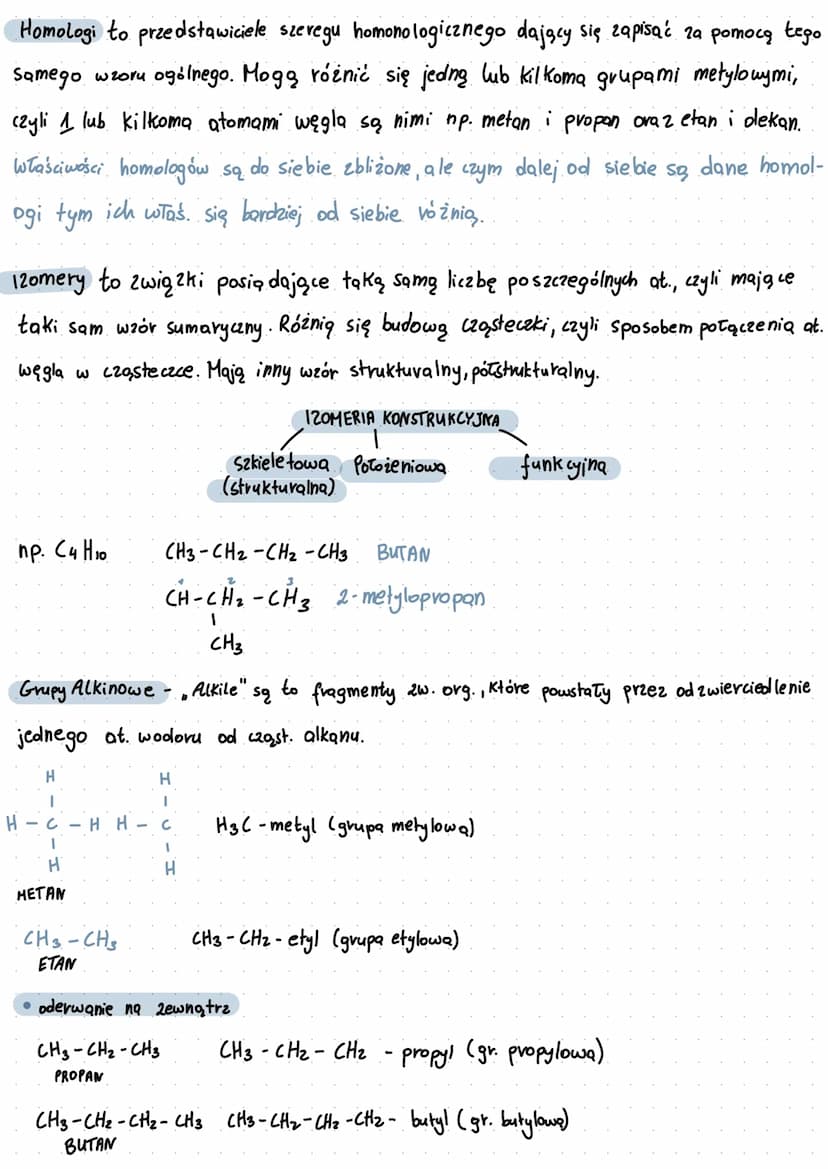 Homologi to przedstawiciele szeregu homonologicznego dający się zapisać za pomocą tego
samego wzoru ogólnego. Mogą różnić się jedną lub kilkoma grupami metylowymi,
czyli 1 lub kilkoma atomami węgla są nimi np. metan i propan oraz etan i dekan.
Właściwości homologów są do siebie zbliżone, ale czym dalej od siebie są dane homol-
ogi tym ich właś. się bardziej od siebie różnią.
Izomery to związki posiadające taką samą liczbę poszczególnych at., czyli mające
taki sam wzór sumaryczny. Różnią się budową cząsteczki, czyli sposobem połączenia at.
węgla w cząsteczce. Mają inny wzór strukturalny, półstrukturalny.
IZOMERIA KONSTRUKCYJNA
szkieletowa położeniowa funkcyjna
(strukturalna)
np. C4H10 CH3-CH2-CH2-CH3 BUTAN
1 2 3
CH-CH2-CH3 2-metylopropan
CH3
Grupy Alkinowe - „Alkile" są to fragmenty zw. org., które powstały przez odzwierciedlenie
jednego at. wodoru od cząst. alkanu.
H H
H-C-H H-C H3C-metyl (grupa metylowa)
H H
METAN
CH3-CH3 CH3-CH2-etyl (grupa etylowa)
ETAN
• oderwanie na zewnątrz
CH3-CH2-CH3 CH3-CH2-CH2 - propyl (gr. propylowa)
PROPAN
CH3-CH2-CH2-CH3 CH3-CH2-CH2-CH2- butyl (gr. butylowa)
BUTAN